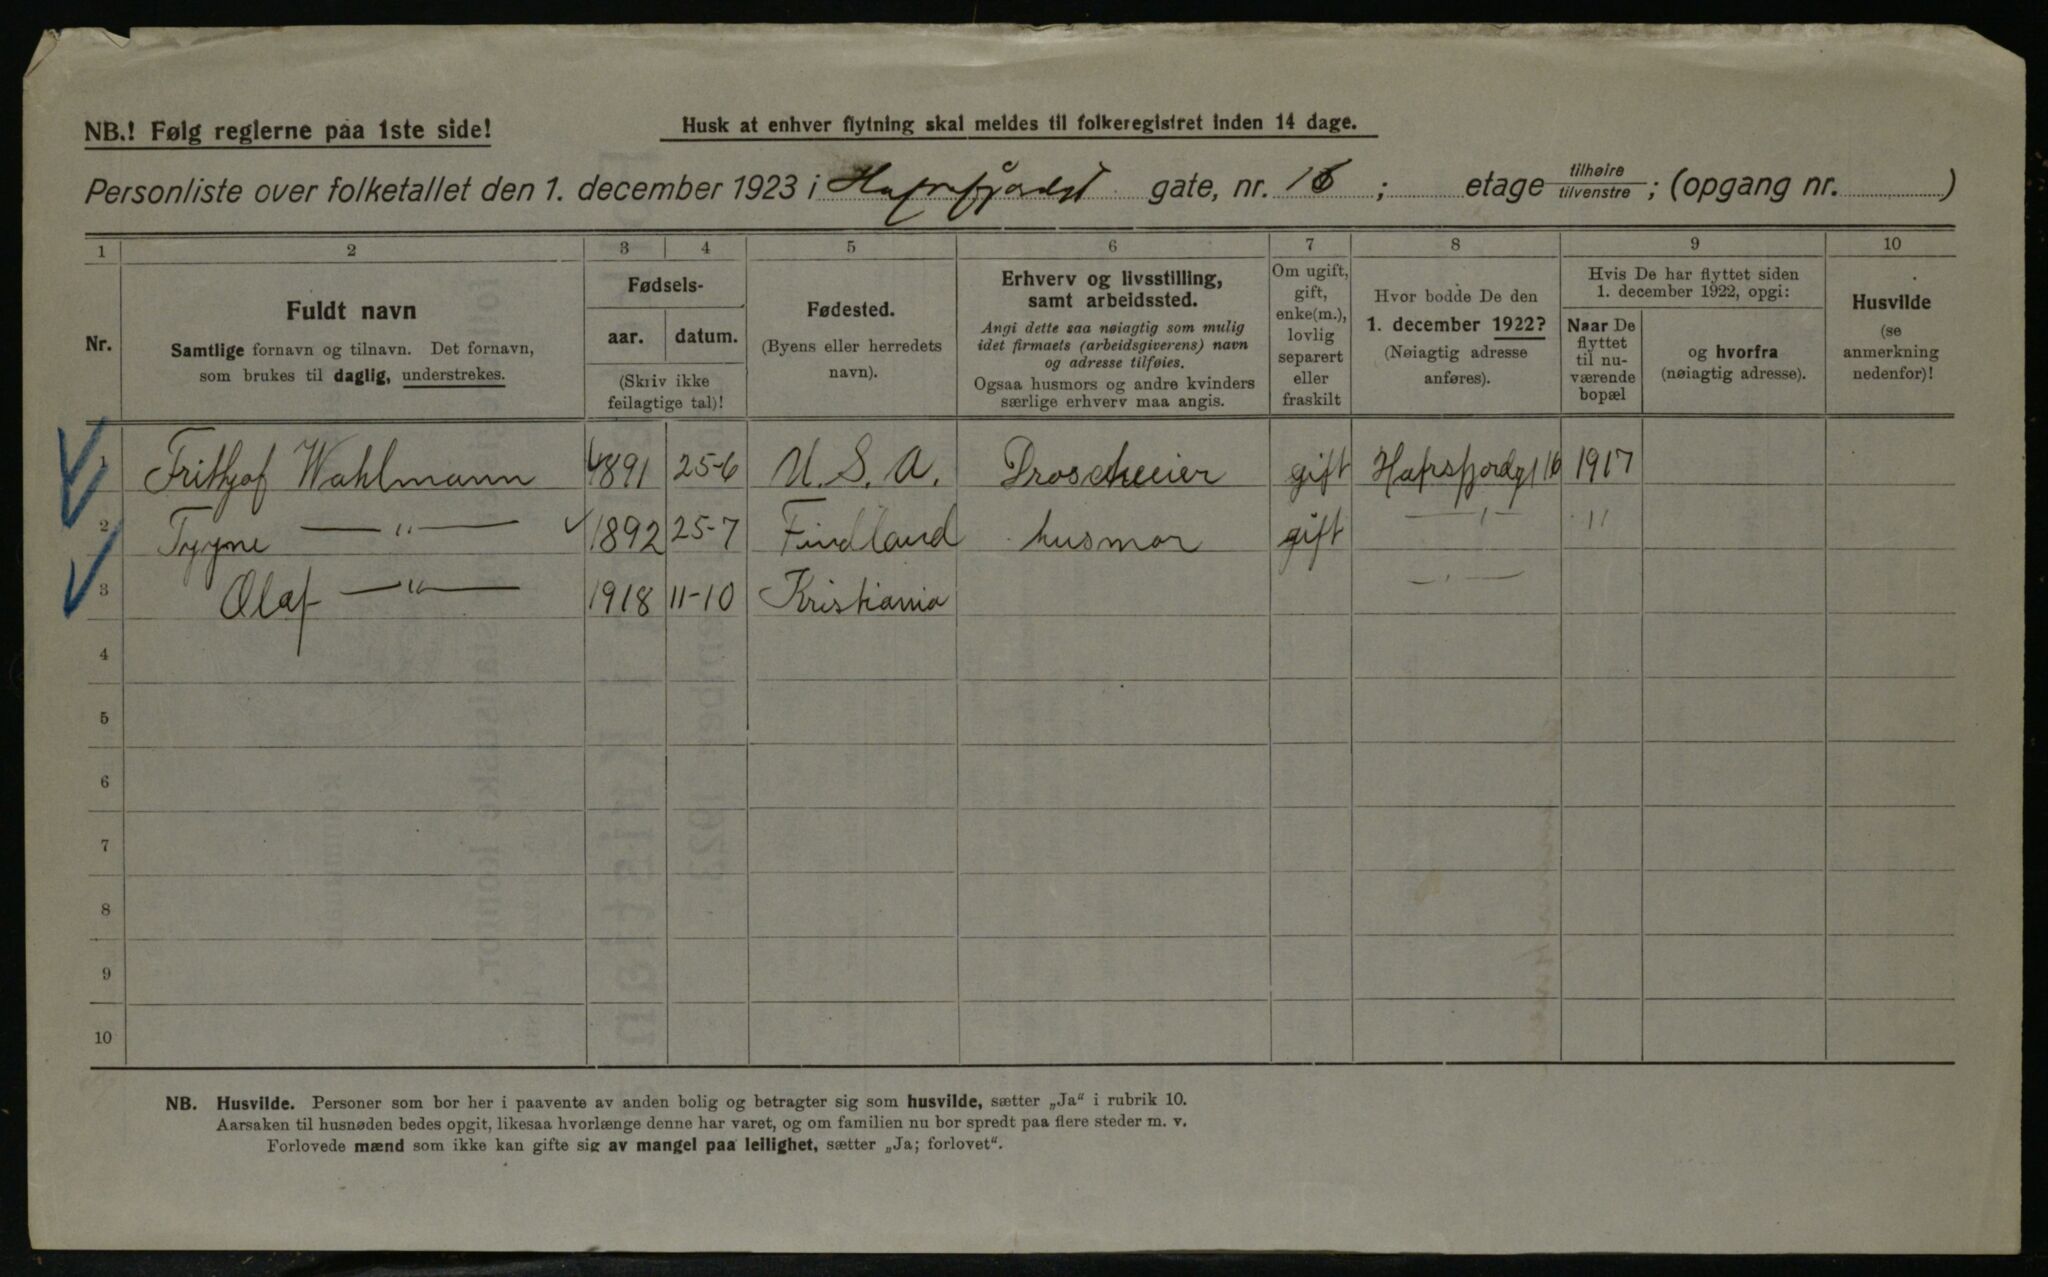 NB.! Følg reglerne paa 1ste side!
Husk at enhver flytning skal meldes til folkeregistret inden 14 dage.
Personliste over folketallet den 1. december 1923 i Hafrsfjordst gate, nr. 16; etage tilhøire tilvenstre; (opgang nr. )
1 2 3 4 5 6 7 8 9 10
Nr.
Fuldt navn
Samtlige fornavn og tilnavn. Det fornavn,
som brukes til daglig, understrekes.
Fødsels-
aar. datum.
(Skriv ikke
feilagtige tal)!
Fødested.
(Byens eller herredets
navn).
Erhverv og livsstilling,
samt arbeidssted.
Angi dette saa nøiagtig som mulig
idet firmaets (arbeidsgiverens) navn
og adresse tilføies.
Ogsaa husmors og andre kvinders
særlige erhverv maa angis.
Om ugift,
gift,
enke(m.),
lovlig
separert
eller
fraskilt
Hvor bodde De den
1. december 1922?
(Nøiagtig adresse
anføres).
Hvis De har flyttet siden
1. december 1922, opgi:
Naar De
flyttet
til nu-
værende
bopæl
og hvorfra
(nøiagtig adresse).
Husvilde
(se
anmerkning
nedenfor)!
1 Frithjof Wahlmann 1891 25-6 U. S. A. Droscheeier gift Hafrsfjordgt 16 1917
2 Tyyne — " — 1892 25-7 Findland husmor gift — " — "
3 Olaf — " — 1918 11-10 Kristiania — " —
4
5
6
7
8
9
10
NB. Husvilde. Personer som bor her i paavente av anden bolig og betragter sig som husvilde, sætter „Ja“ i rubrik 10.
Aarsaken til husnøden bedes opgit, likesaa hvorlænge denne har varet, og om familien nu bor spredt paa flere steder m. v.
Forlovede mænd som ikke kan gifte sig av mangel paa leilighet, sætter „Ja; forlovet“.